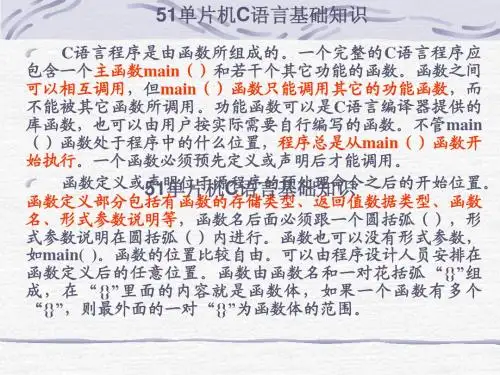 51单片机C语言基础知识
C语言程序是由函数所组成的。一个完整的C语言程序应
包含一个主函数main（）和若干个其它功能的函数。函数之间
可以相互调用，但main（）函数只能调用其它的功能函数，而
不能被其它函数所调用。功能函数可以是C语言编译器提供的
库函数，也可以由用户按实际需要自行编写的函数。不管main
（）函数处于程序中的什么位置，程序总是从main（）函数开
始执行。一个函数必须预先定义或声明后才能调用。
函数定义或声明位于源程序的预处理命令之后的开始位置。
51单片机C语言基础知识
函数定义部分包括有函数的存储类型、返回值数据类型、函数
名、形式参数说明等，函数名后面必须跟一个圆括弧（），形
式参数说明在圆括弧（）内进行。函数也可以没有形式参数，
如main( )。函数的位置比较自由。可以由程序设计人员安排在
函数定义后的任意位置。函数由函数名和一对花括弧“{}”组
成，在“{}”里面的内容就是函数体，如果一个函数有多个
“{}”，则最外面的一对“{}”为函数体的范围。